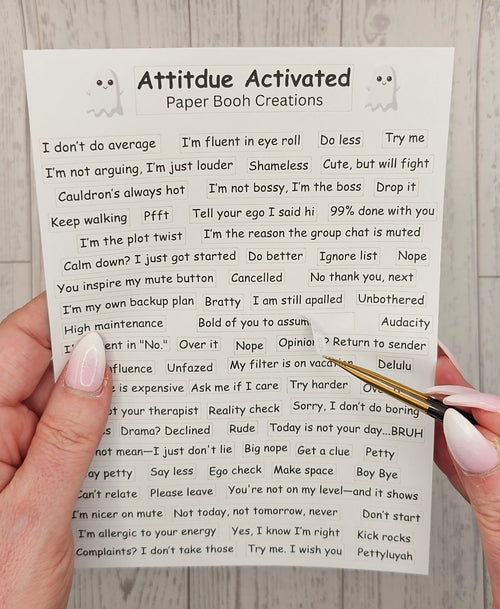 Attitdue Activated
Paper Booh Creations
I don't do average I'm fluent in eye roll Do less Try me
I'm not arguing, I'm just louder Shameless Cute, but will fight
Cauldron's always hot I'm not bossy, I'm the boss Drop it
Keep walking Pfft Tell your ego I said hi 99% done with you
I'm the plot twist I'm the reason the group chat is muted
Calm down? I just got started Do better Ignore list Nope
You inspire my mute button Cancelled No thank you, next
I'm my own backup plan Bratty I am still apalled Unbothered
High maintenance Bold of you to assum Audacity
ent in "No." Over it Nope Opinion ? Return to sender
nfluence Unfazed My filter is on vacation Delulu
is expensive Ask me if I care Try harder
ot your therapist Reality check Sorry, I don't do boring
Drama? Declined Rude Today is not your day...BRUH
not mean—I just don't lie Big nope Get a clue Petty
ay petty Say less Ego check Make space Boy Bye
Can't relate Please leave You're not on my level—and it shows
I'm nicer on mute Not today, not tomorrow, never Don't start
I'm allergic to your energy Yes, I know I'm right Kick rocks
Complaints? I don't take those Try me. I wish you Pettyluyah